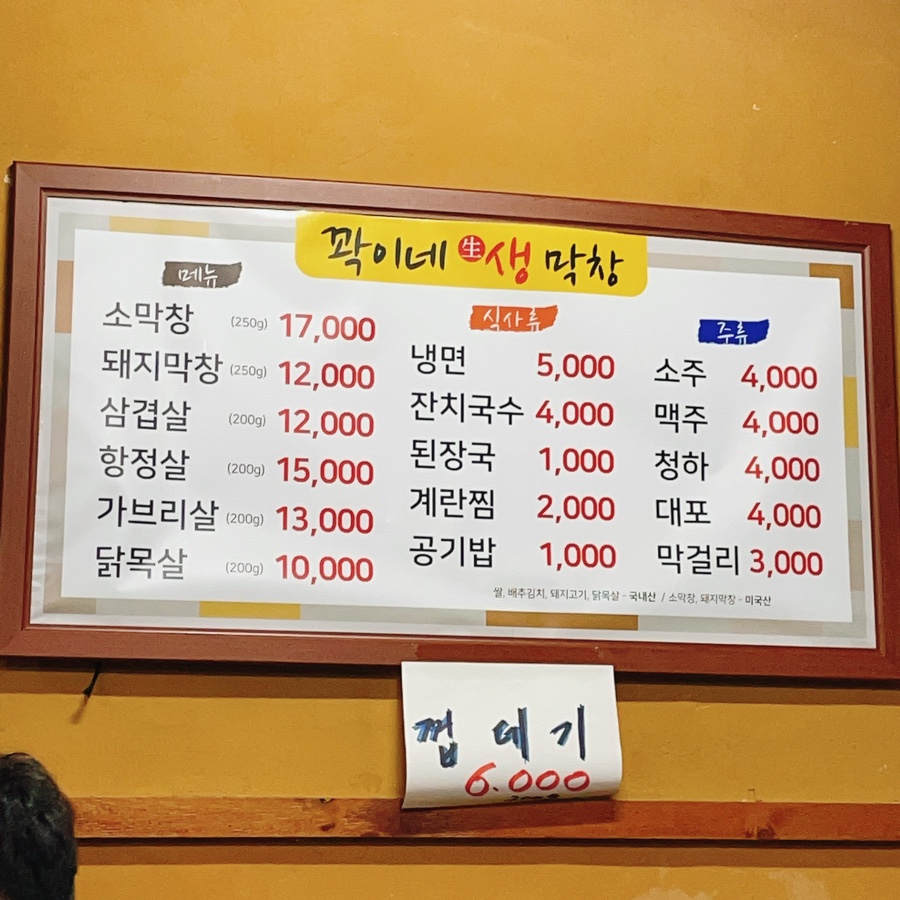 꽉이네 生생 막창
메뉴
소막창 (250g) 17,000
돼지막창 (250g) 12,000
삼겹살 (200g) 12,000
항정살 (200g) 15,000
가브리살 (200g) 13,000
닭목살 (200g) 10,000
식사류
냉면 5,000
잔치국수 4,000
된장국 1,000
계란찜 2,000
공기밥 1,000
주류
소주 4,000
맥주 4,000
청하 4,000
대포 4,000
막걸리 3,000
쌀, 배추김치, 돼지고기, 닭목살 - 국내산 / 소막창, 돼지막창 - 미국산
껍데기
6.000